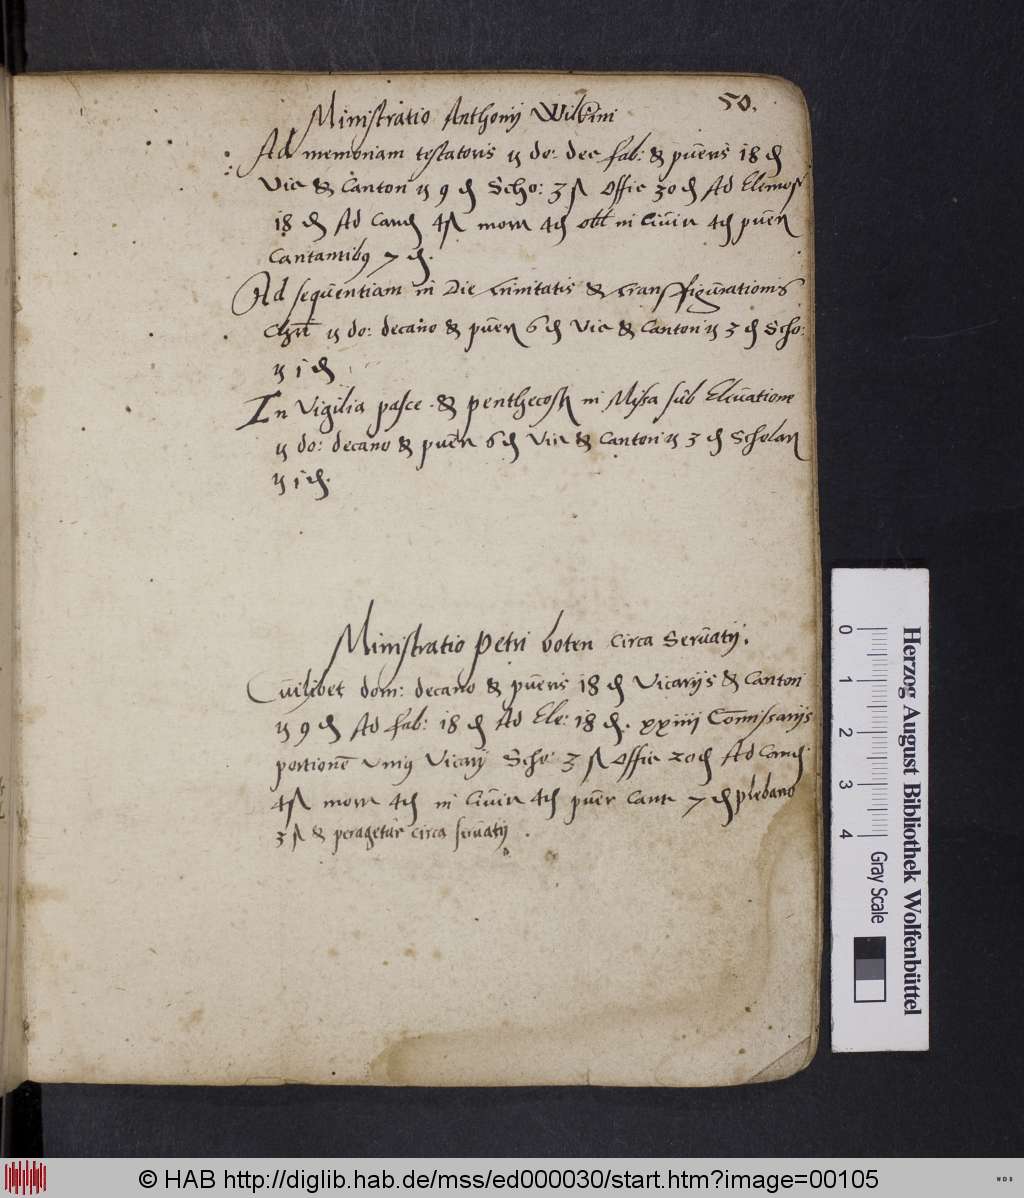 50.
Ministratio Anthonij Wilkini
Ad memoriam testatoris ij do: dec fab: & pueris 18 ₰
Vic & Canton ij 9 ₰ Scho: 3 ß Offic 30 ₰ Ad Elimos
18 ₰ Ad Cand 4 ß 4 ₰ obl in 4 ₰ puer
Cantantibus 7 ₰.
Ad sequentiam in Die trinitatis & transffigurationis
Chri ij do: decano & puer 6 ₰ Vic & Canton ij 3 ₰ Scho:
ij j ₰
In Vigilia pasce & penthecost in Missa sub Eleuatione
ij do: decano & puer 6 ₰ Vic & Canton ij 3 ₰ Scholar
ij j ₰.
Ministratio Petri boten circa Seruatij.
Cuilibet dom: decano & pueris 18 ₰ Vicarijs & Canton
ij 9 ₰ Ad fab: 18 ₰ Ad Ele: 18 ₰. xxiiij Comissarijs
portione Vnius Vicarij Scho 3 ß Offic 20 ₰ Ad Cand
4 ß 4 ₰ in 4 ₰ puer Cant 7 ₰ plebano
3 ß & peragetur circa seruatij.
0 1 2 3 4
Herzog August Bibliothek Wolfenbüttel
Gray Scale
© HAB http://diglib.hab.de/mss/ed000030/start.htm?image=00105